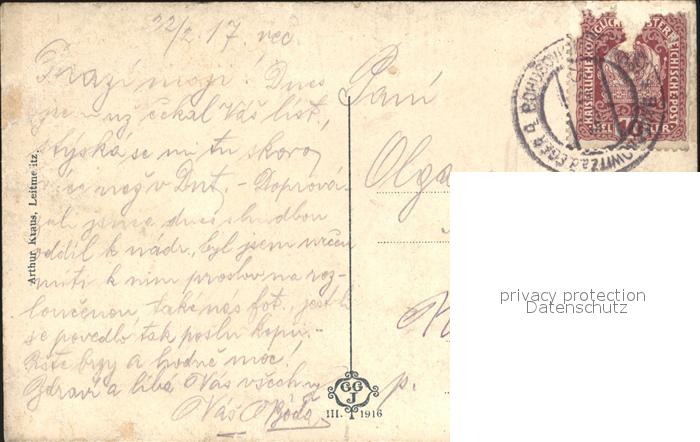 22/2. 17. več.
Drazí moji! Dnes
jsem už čekal Váš list,
stýská se mi tu skoro
více než v Dut. - Doprová-
zeli jsme dnes hudbou
oddíl k nádr., byl jsem určen
míti k nim proslov na roz-
loučenou, také nás fot., jestli
se povedlo tak pošlu kopii. -
Pište brzy a hodně moc!
Zdraví a líbá Vás všechny
Váš
Arthur Kraus, Leitmeritz.
GG
J
III. 1916
Paní
Olga
p.
KAISERLICHE KÖNIGLICHE ÖSTERREICHISCHE POST
10 HELLER 10
privacy protection
Datenschutz